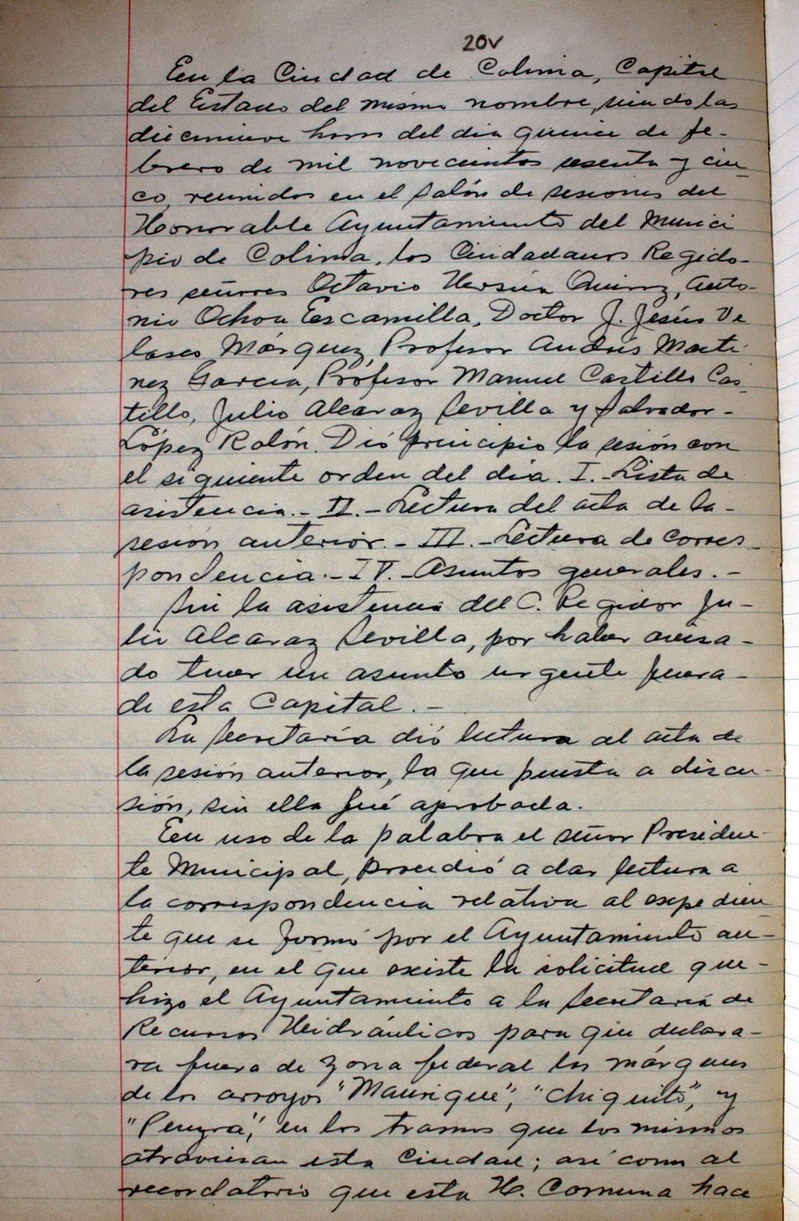 20V
En la Ciudad de Colima, Capital
del Estado del mismo nombre, siendo las
diecinueve horas del dia quince de fe-
brero de mil novecientos sesenta y cin-
co, reunidos en el salón de sesiones del
Honorable Ayuntamiento del Munici
pio de Colima, los Ciudadanos Regido-
res señores Octavio Quiroz, Anto-
nio Ochoa Escamilla, Doctor J. Jesús Ve
lasco Márquez, Profesor Andrés Martí
nez García, Profesor Manuel Castillo Cas
tillo, Julio Alcaraz Sevilla y Salvador-
López Rolón. Dió principio la sesión con
el siguiente orden del día. I.- Lista de
asistencia.- II.- Lectura del acta de la-
sesión anterior.- III.- Lectura de corres-
pondencia.- IV.- Asuntos generales.-
Sin la asistencia del C. Regidor Ju-
lio Alcaraz Sevilla, por haber avisa-
do tener un asunto urgente fuera-
de esta Capital.-
La Secretaría dió lectura al acta de
la sesión anterior, la que puesta a discu-
sión, sin ella fué aprobada.
En uso de la palabra el señor Presiden-
te Municipal, procedió a dar lectura a
la correspondencia relativa al expedien
te que se formó por el Ayuntamiento an-
terior, en el que existe la solicitud que-
hizo el Ayuntamiento a la Secretaría de
Recursos Heidráulicos para que declara-
ra fuera de zona federal los márgenes
de los arroyos "Manrique", "Chiquito", y
"Pereyra", en los tramos que los mismos
atraviesan esta Ciudad; así como al
recordatorio que esta H. Comuna hace